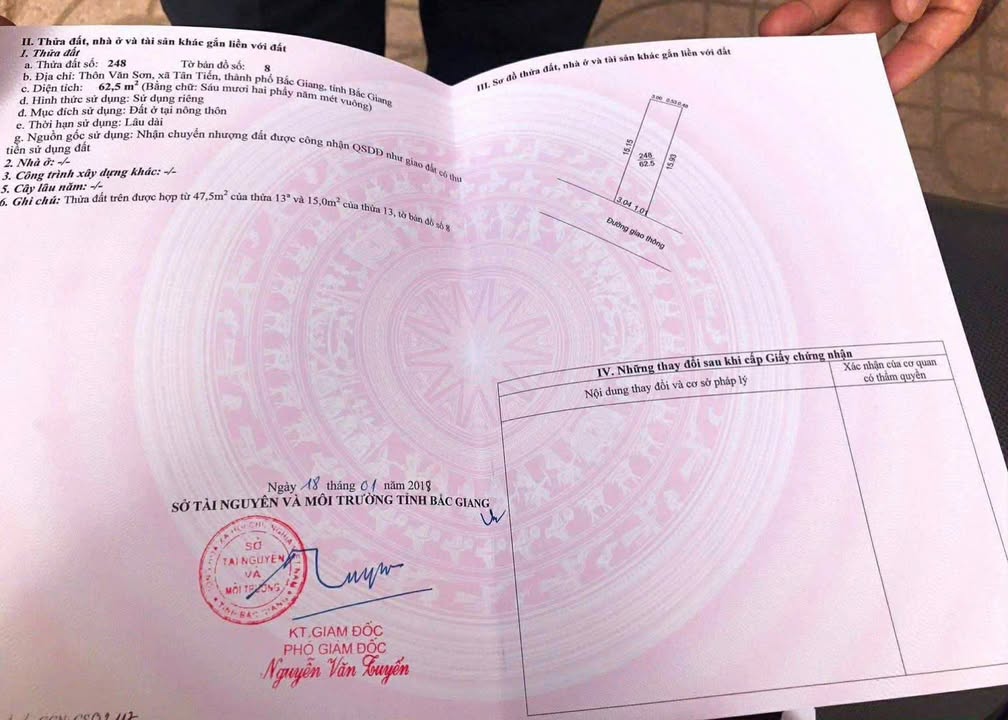 II. Thửa đất, nhà ở và tài sản khác gắn liền với đất
1. Thửa đất
a. Thửa đất số: 248 Tờ bản đồ số: 8
b. Địa chỉ: Thôn Văn Sơn, xã Tân Tiến, thành phố Bắc Giang, tỉnh Bắc Giang
c. Diện tích: 62,5 m² (Bằng chữ: Sáu mươi hai phẩy năm mét vuông)
d. Hình thức sử dụng: Sử dụng riêng
đ. Mục đích sử dụng: Đất ở tại nông thôn
e. Thời hạn sử dụng: Lâu dài
g. Nguồn gốc sử dụng: Nhận chuyển nhượng đất được công nhận QSDĐ như giao đất có thu
tiền sử dụng đất
2. Nhà ở: -/-
3. Công trình xây dựng khác: -/-
5. Cây lâu năm: -/-
6. Ghi chú: Thửa đất trên được hợp từ 47,5m² của thửa 13ª và 15,0m² của thửa 13, tờ bản đồ số 8
Ngày 18 tháng 01 năm 2018
SỞ TÀI NGUYÊN VÀ MÔI TRƯỜNG TỈNH BẮC GIANG
SỞ
TÀI NGUYÊN
VÀ
MÔI TRƯỜNG
TỈNH BẮC GIANG
KT.GIÁM ĐỐC
PHÓ GIÁM ĐỐC
Nguyễn Văn Tuyến
III. Sơ đồ thửa đất, nhà ở và tài sản khác gắn liền với đất
15.15
248
62.5
15.93
3.04 1.01
Đường giao thông
IV. Những thay đổi sau khi cấp Giấy chứng nhận
Nội dung thay đổi và cơ sở pháp lý
Xác nhận của cơ quan
có thẩm quyền